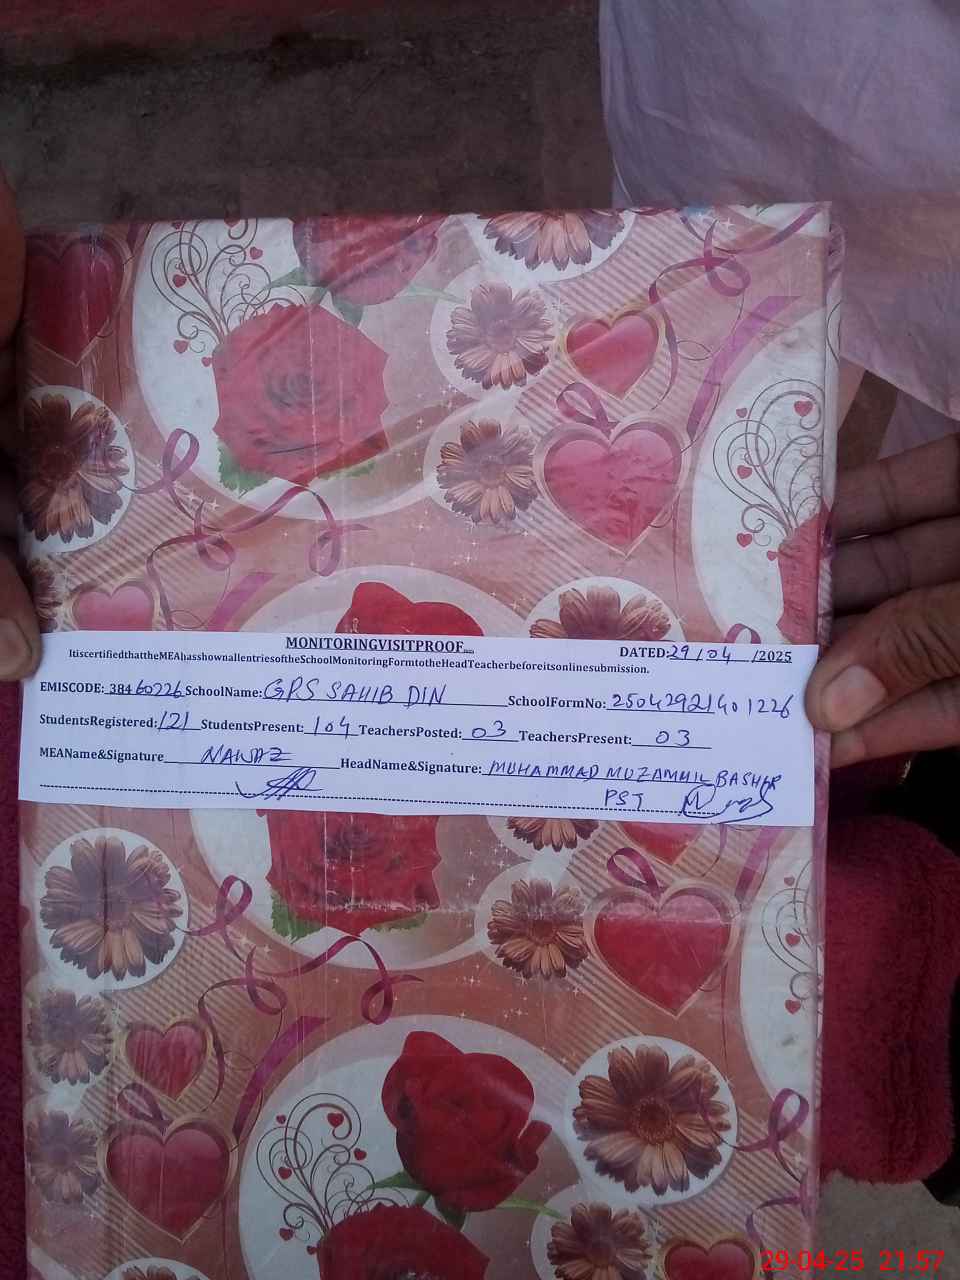 MONITORINGVISITPROOF
DATED:29/04/2025
ItiscertifiedthattheMEAhasshownallentriesoftheSchoolMonitoringFormtotheHeadTeacherbeforeitsonlinesubmission.
EMISCODE: 38460226 SchoolName: GPS SAHIB DIN SchoolFormNo: 25042921401226
StudentsRegistered: 121 StudentsPresent: 104 TeachersPosted: 03 TeachersPresent: 03
MEAName&Signature NAWAZ HeadName&Signature: MUHAMMAD MUZAMMIL BASHIR
PST
29-04-25 21:57